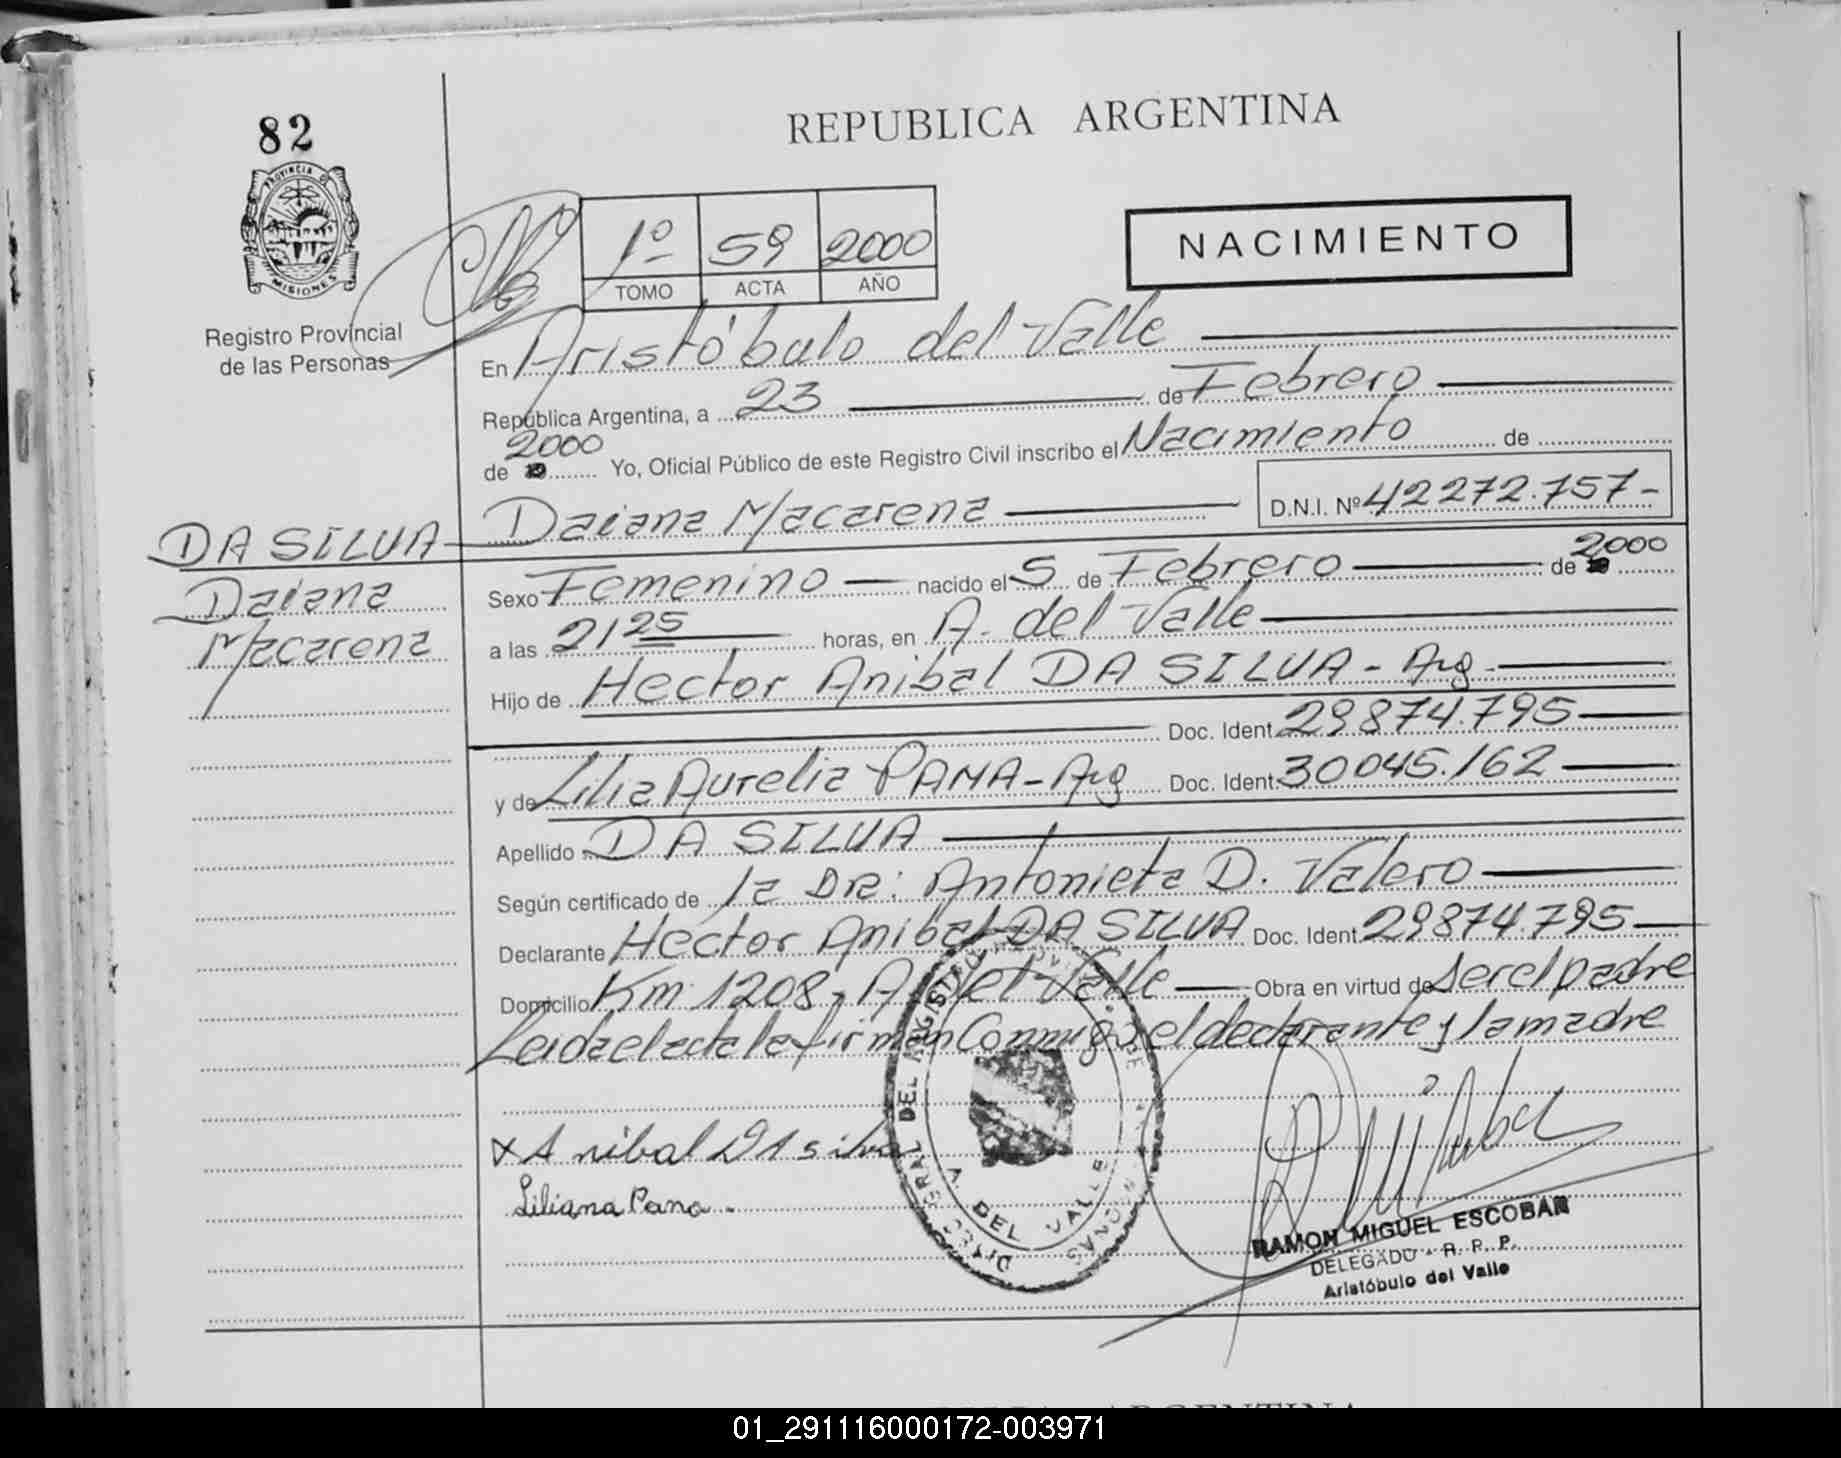 82
REPUBLICA ARGENTINA
PROVINCIA DE
MISIONES
Registro Provincial
de las Personas
1º 59 2000
TOMO ACTA AÑO
NACIMIENTO
En Aristóbulo del Valle
República Argentina, a 23 de Febrero
de 2000 Yo, Oficial Público de este Registro Civil inscribo el Nacimiento de
Daiana Macarena D.N.I. Nº 42272.757-
DA SILVA
Daiana
Macarena
Sexo Femenino nacido el 5 de Febrero de 2000
a las 2125 horas, en A. del Valle
Hijo de Hector Anibal DA SILVA - Arg.
Doc. Ident. 29874.795
y de Lilia Aurelia PAMA - Arg Doc. Ident. 30045.162
Apellido DA SILVA
Según certificado de la Dra: Antonieta D. Valero
Declarante Hector Anibal DA SILVA Doc. Ident. 29874.795
Domicilio Km. 1208, A. del Valle Obra en virtud de ser el padre
Leida el acta la firman Conmigo el declarante y la madre
x Anibal DA silva
Liliana Pana.
DIREC. GRAL DEL REGISTRO PROVINCIAL DE LAS PERSONAS
A. DEL VALLE
RAMON MIGUEL ESCOBAR
DELEGADO - R. P. P.
Aristóbulo del Valle
ARGENTINA
01_291116000172-003971